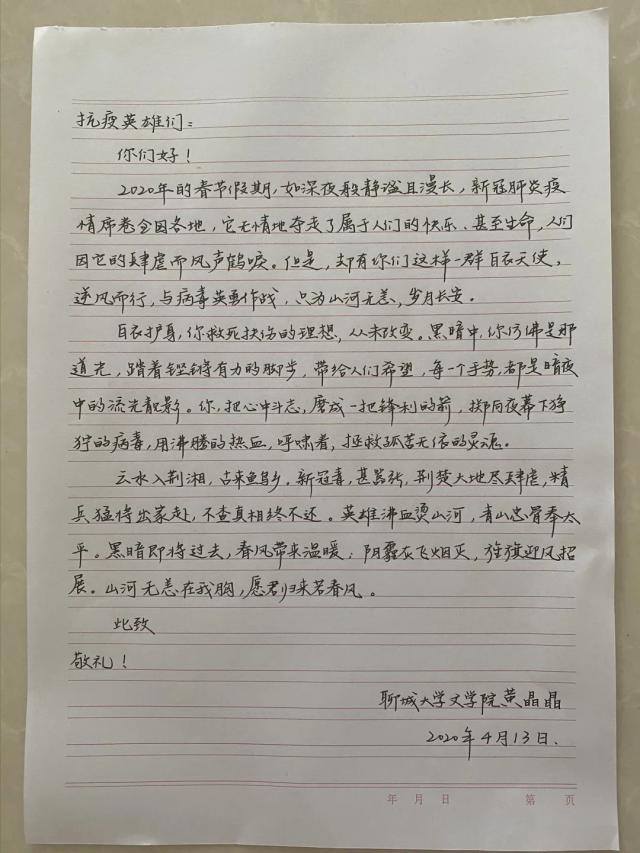 抗疫英雄们：
你们好！
2020年的春节假期，如深夜般静谧且漫长，新冠肺炎疫
情席卷全国各地，它无情地夺走了属于人们的快乐、甚至生命，人们
因它的肆虐而风声鹤唳。但是，却有你们这样一群白衣天使，
逆风而行，与病毒英勇作战，只为山河无恙，岁月长安。
白衣护身，你救死扶伤的理想，从未改变。黑暗中，你仿佛是那
道光，踏着铿锵有力的脚步，带给人们希望，每一个手势，都是暗夜
中的流光靓影。你，把心中斗志，磨成一把锋利的箭，掷向夜幕下狰
狞的病毒，用沸腾的热血，呼啸着，拯救孤苦无依的灵魂。
云水入荆湘，古来鱼米乡。新冠毒，甚嚣张，荆楚大地尽肆虐，精
兵猛将出家赴，不查真相终不还。英雄沸血烫山河，青山忠骨奉太
平。黑暗即将过去，春风带来温暖；阴霾灰飞烟灭，旌旗迎风招
展。山河无恙在我胸，愿君归来若春风。
此致
敬礼！
聊城大学文学院黄晶晶
2020年4月13日.
年 月 日 第 页